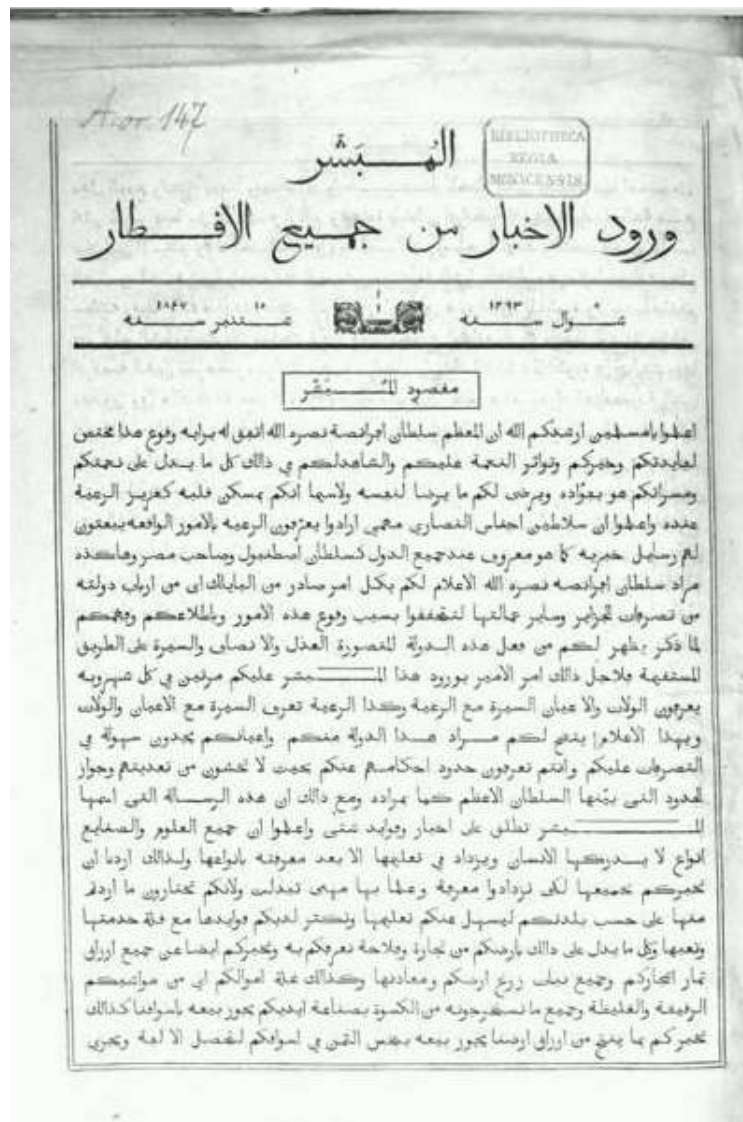 A. or. 147
BIBLIOTHECA
REGIA
MONACENSIS.
المُبَشّر
ورود الاخبار من جميع الافطار
٥ شوال سنه ١٢٦٣
١
١٥ شتنبر سنه ١٨٤٧
مفصود المُبَشّر
اعلموا يامسلمين ارشدكم الله ان المعظم سلطان افرانصة نصره الله اتفق له برايه وفوع هذا مختص
لفايدتكم وخيركم وتواثر النعمة عليكم والشاهدلكم في ذالك كل ما يدل على نعمتكم
ومسراتكم هو بجوّاده ويرضى لكم ما يرضا لنفسه ولاسيما انكم بمسكن فلبه كعزيز الرعية
عنده واعلموا ان سلاطين اجناس النصارى مهمى ارادوا يعرّفون الرعيه بالامور الوافعه يبعثون
لهم رسايل خبريه كما هو معروف عند جميع الدول كسلطان اصطنبول وصاحب مصر وهاكذه
مراد سلطان افرانصه نصره الله الاعلام لكم بكل امر صادر من البايلك اى من ارباب دولته
من تصرفات الجزاير وساير عمالتها لتتحففوا بسبب وفوع هذه الامور وباطلاعكم وفهمكم
لما ذكر يظهر لكم من فعل هذه الدولة المنصورة العدل والا نصاف والسيرة على الطريق
المستفيمة فلاجل ذالك امر الامير بورود هذا المبشر عليكم مرتين في كل شهر وبه
يعرفون الولات والا عيان السيرة مع الرعية وكذا الرعية تعرف السيرة مع الاعيان والولات
وبهذا الاعلام ينتج لكم مراد هذا الدولة منكم واعيانكم يجدون سهولة في
التصرفات عليكم وانتم تعرفون حدود احكامهم عنكم بحيث لا تخشون من تعديتهم وجواز
الحدود التى بيّنها السلطان الاعظم كما بمراده ومع ذالك ان هذه الرسالة التى اسمها
المبشر تطلق على اخبار وفوايد شتى واعلموا ان جميع العلوم والصنايع
انواع لا يدركها الانسان ويزداد في تعلمها الا بعد معرفته بانواعها ولذالك اردنا ان
نخبركم بجميعها لكى تزدادوا معرفة وعلما بها مهمى تبدلت ولانكم تختارون ما اردتم
منها على حسب بلدتكم ليسهل عنكم تعلمها وتكثر لديكم فوايدها مع فلة خدمتها
وتعبها وكل ما يدل على ذالك بارضكم من تجارة وفلاحة نعرفكم به ونخبركم ايضا عن جميع اوراق
ثمار اشجاركم وجميع نبات زرع ارضكم ومعادنها وكذالك غلة اموالكم اى من مواشيكم
الرفيفة والغليظة وجميع ما تستخرجونه من الكسوة بصناعة ايديكم يجوز بيعه باسوافنا كذالك
نخبركم بما ينتج من اوراق ارضنا يجوز بيعه بخس الثمن في اسوافكم لتحصل الا لفة ويجرى